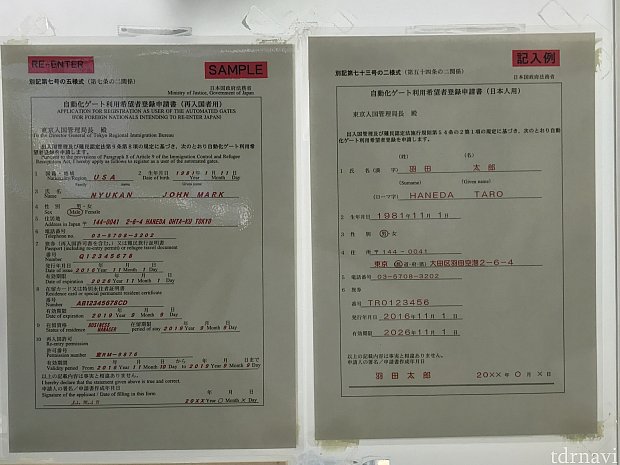 RE-ENTER
SAMPLE
別記第七号の五様式(第七条の二関係)
日本国政府法務省
Ministry of Justice, Government of Japan
自動化ゲート利用希望者登録申請書(再入国者用)
APPLICATION FOR REGISTRATION AS USER OF THE AUTOMATED GATES
(FOR FOREIGN NATIONALS INTENDING TO RE-ENTER JAPAN)
東京入国管理局長 殿
To the Director General of Tokyo Regional Immigration Bureau
出入国管理及び難民認定法第9条第8項の規定に基づき、次のとおり自動化ゲート利用希望者登録を申請します。
Pursuant to the provisions of Paragraph 8 of Article 9 of the Immigration Control and Refugee
Recognition Act, I hereby apply to register as a user of the automated gates.
1 国籍・地域 USA 2 生年月日 1981年11月11日
Nationality/Region Date of birth Year Month Day
Family name Given name
3 氏名 NYUKAN JOHN MARK
Name
4 性別 男・女
Sex Male/Female
5 住居地 〒144-0041 2-6-4 HANEDA OHTA-KU TOKYO
Address in Japan
6 電話番号 03-5708-3202
Telephone no.
7 旅券(再入国許可書を含む。)又は難民旅行証明書
Passport (including re-entry permit) or refugee travel document
番号 Q12345678
Number
発行年月日 年 月 日
Date of issue 2016 Year 11 Month 1 Day
有効期限 年 月 日
Date of expiration 2026 Year 11 Month 1 Day
8 在留カード又は特別永住者証明書
Residence card or special permanent resident certificate
番号 AB12345678CD
Number
有効期限 年 月 日
Date of expiration 2019 Year 9 Month 9 Day
9 在留資格 BUSINESS MANAGER 在留期限 年 月 日
Status of residence period of stay 2019 Year 9 Month 9 Day
10 再入国許可
Re-entry permission
許可番号 東RM-9876
Permission number
有効期間 年 月 日から 年 月 日まで
Validity period From 2016 Year 11 Month 10 Day to 2019 Year 9 Month 9 Day
以上の記載内容は事実と相違ありません。
I hereby declare that the statement given above is true and correct.
申請人の署名/申請書作成年月日
Signature of the applicant / Date of filling in this form
20XX Year 〇 Month × Day
記入例
別記第七十三号の二様式(第五十四条の二関係)
日本国政府法務省
自動化ゲート利用希望者登録申請書(日本人用)
東京入国管理局長 殿
出入国管理及び難民認定法施行規則第54条の2第1項の規定に基づき、次のとおり自動化ゲート利用希望者登録を申請します。
(姓) (名)
1 氏名(漢字) 羽田 太郎
(Surname) (Given name)
(ローマ字) HANEDA TARO
2 生年月日 1981年11月1日
3 性別 男・女
4 住所 〒144-0041
東京 都・道・府・県 大田区羽田空港2-6-4
5 電話番号 03-5708-3202
6 旅券
番号 TR0123456
発行年月日 2016年11月1日
有効期限 2026年11月1日
以上の記載内容は事実と相違ありません。
申請人の署名/申請書作成年月日
羽田 太郎 20××年〇月×日
tdrnavi